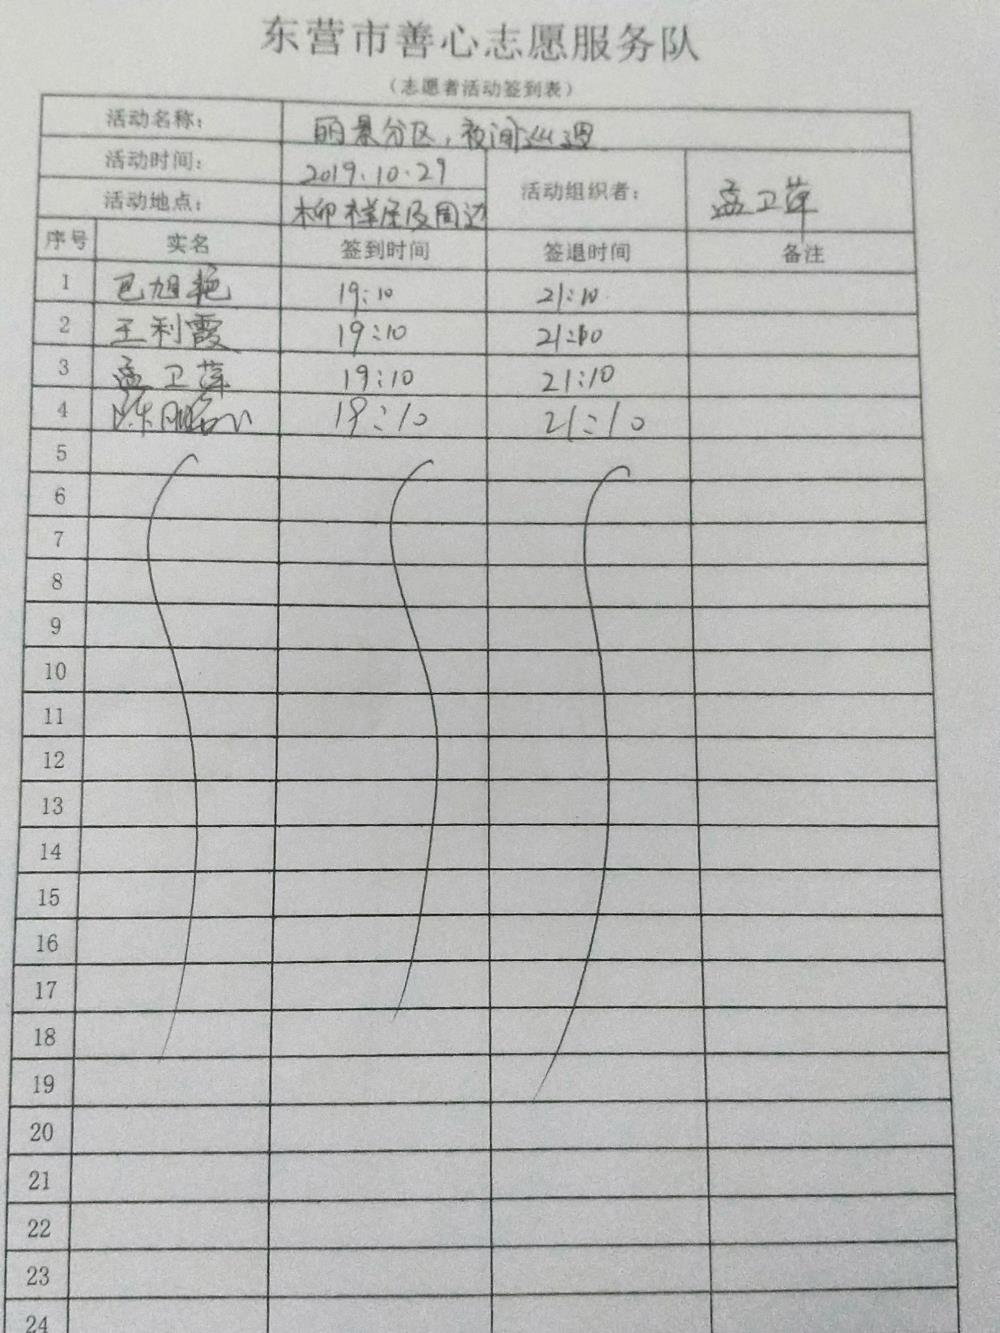 东营市善心志愿服务队
（志愿者活动签到表）
活动名称： 丽景分区，夜间巡逻
活动时间： 2019.10.29 活动组织者： 孟卫萍
活动地点： 及周边
序号 实名 签到时间 签退时间 备注
1 巴旭艳 19:10 21:10
2 王利霞 19:10 21:10
3 孟卫萍 19:10 21:10
4 陈 19:10 21:10
5
6
7
8
9
10
11
12
13
14
15
16
17
18
19
20
21
22
23
24